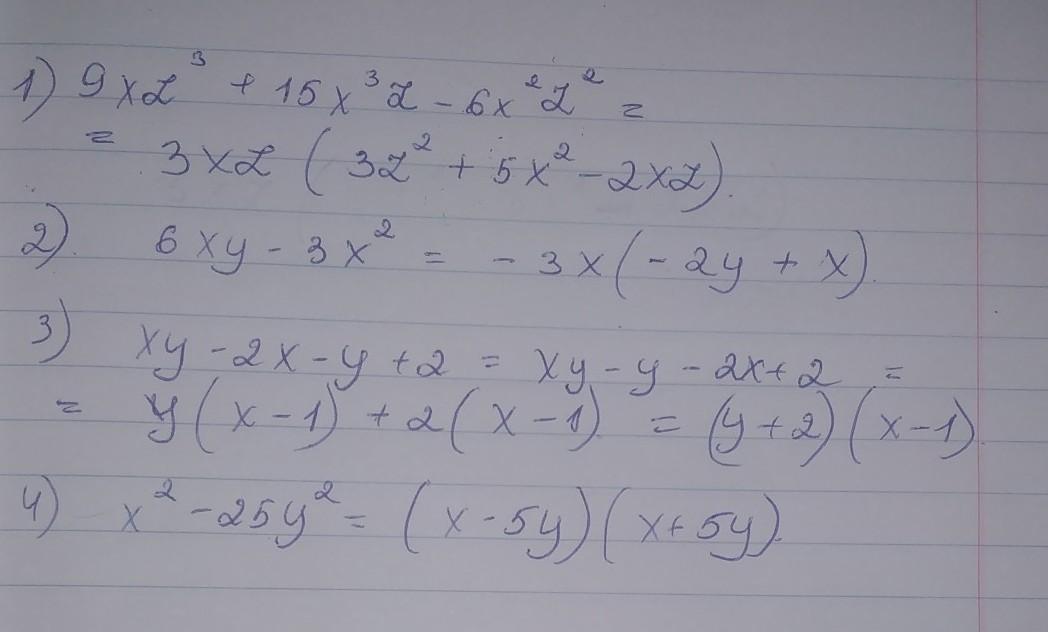 1) 9xz³ + 15x³z - 6x²z² =
= 3xz ( 3z² + 5x² - 2xz).
2). 6xy - 3x² = - 3x(- 2y + x).
3) xy - 2x - y + 2 = xy - y - 2x + 2 =
= y( x - 1) + 2( x - 1) = (y+2)(x-1).
4) x² - 25y² = ( x - 5y)( x + 5y).